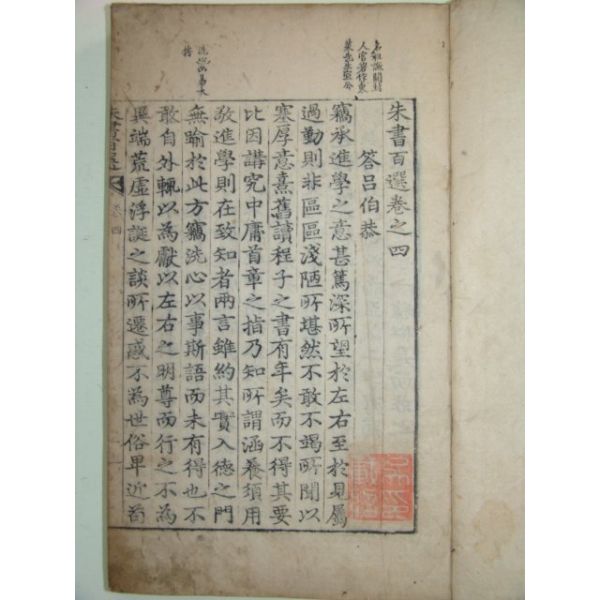 名祖謙開封
人官著作東
萊先生
朱書百選卷之四
答呂伯恭
竊承進學之意甚篤深所望於左右至於見屬
過勤則非區區淺陋所堪然不敢不竭所聞以
塞厚意熹舊讀程子之書有年矣而不得其要
比因講究中庸首章之指乃知所謂涵養須用
敬進學則在致知者兩言雖約其實入德之門
無踰於此方竊洗心以事斯語而未有得也不
敢自外輒以為獻以左右之明尊而行之不為
異端荒虛浮誕之談所遷惑不為世俗卑近苟
洗心易大
傳
朱書百選
卷四